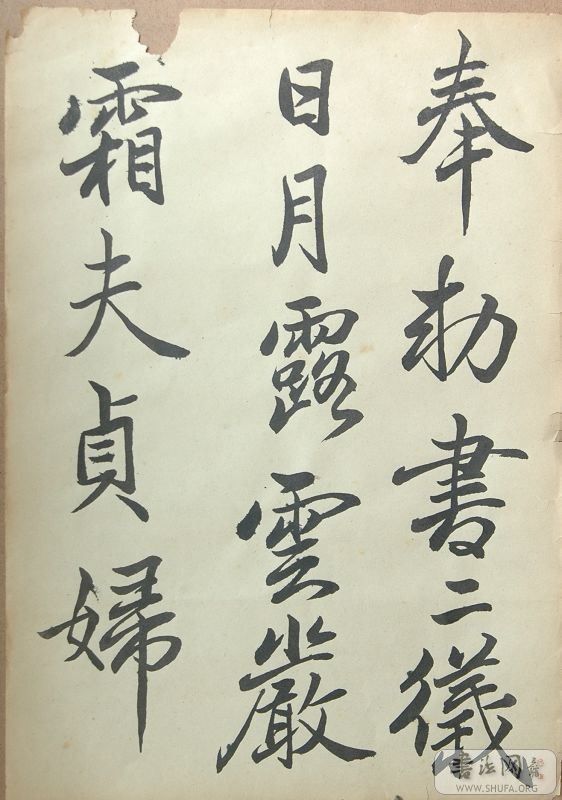 奉勑書二儀
日月露雲嚴
霜夫貞婦
书法网
WWW.SHUFA.ORG